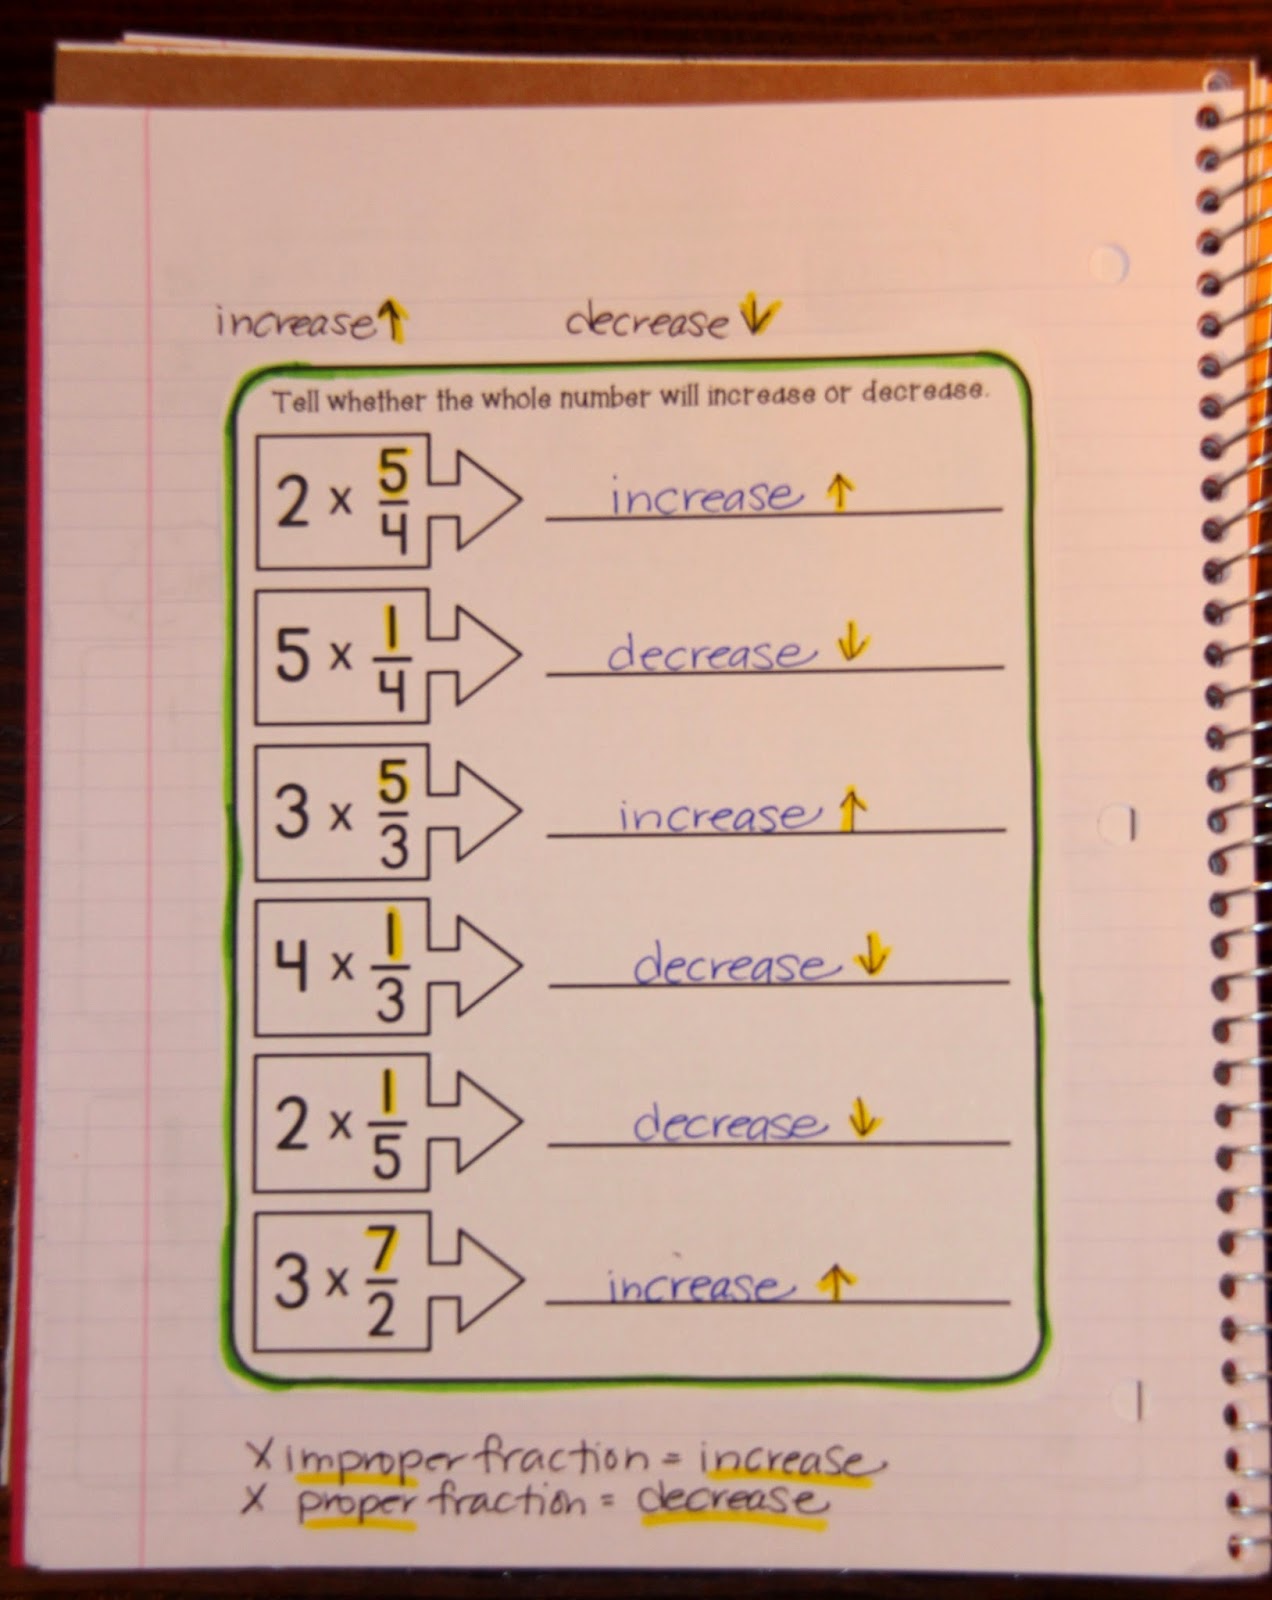 increase↑ decrease↓
Tell whether the whole number will increase or decrease.
2 x 5/4 increase ↑
5 x 1/4 decrease ↓
3 x 5/3 increase ↑
4 x 1/3 decrease ↓
2 x 1/5 decrease ↓
3 x 7/2 increase ↑
x improper fraction = increase
x proper fraction = decrease